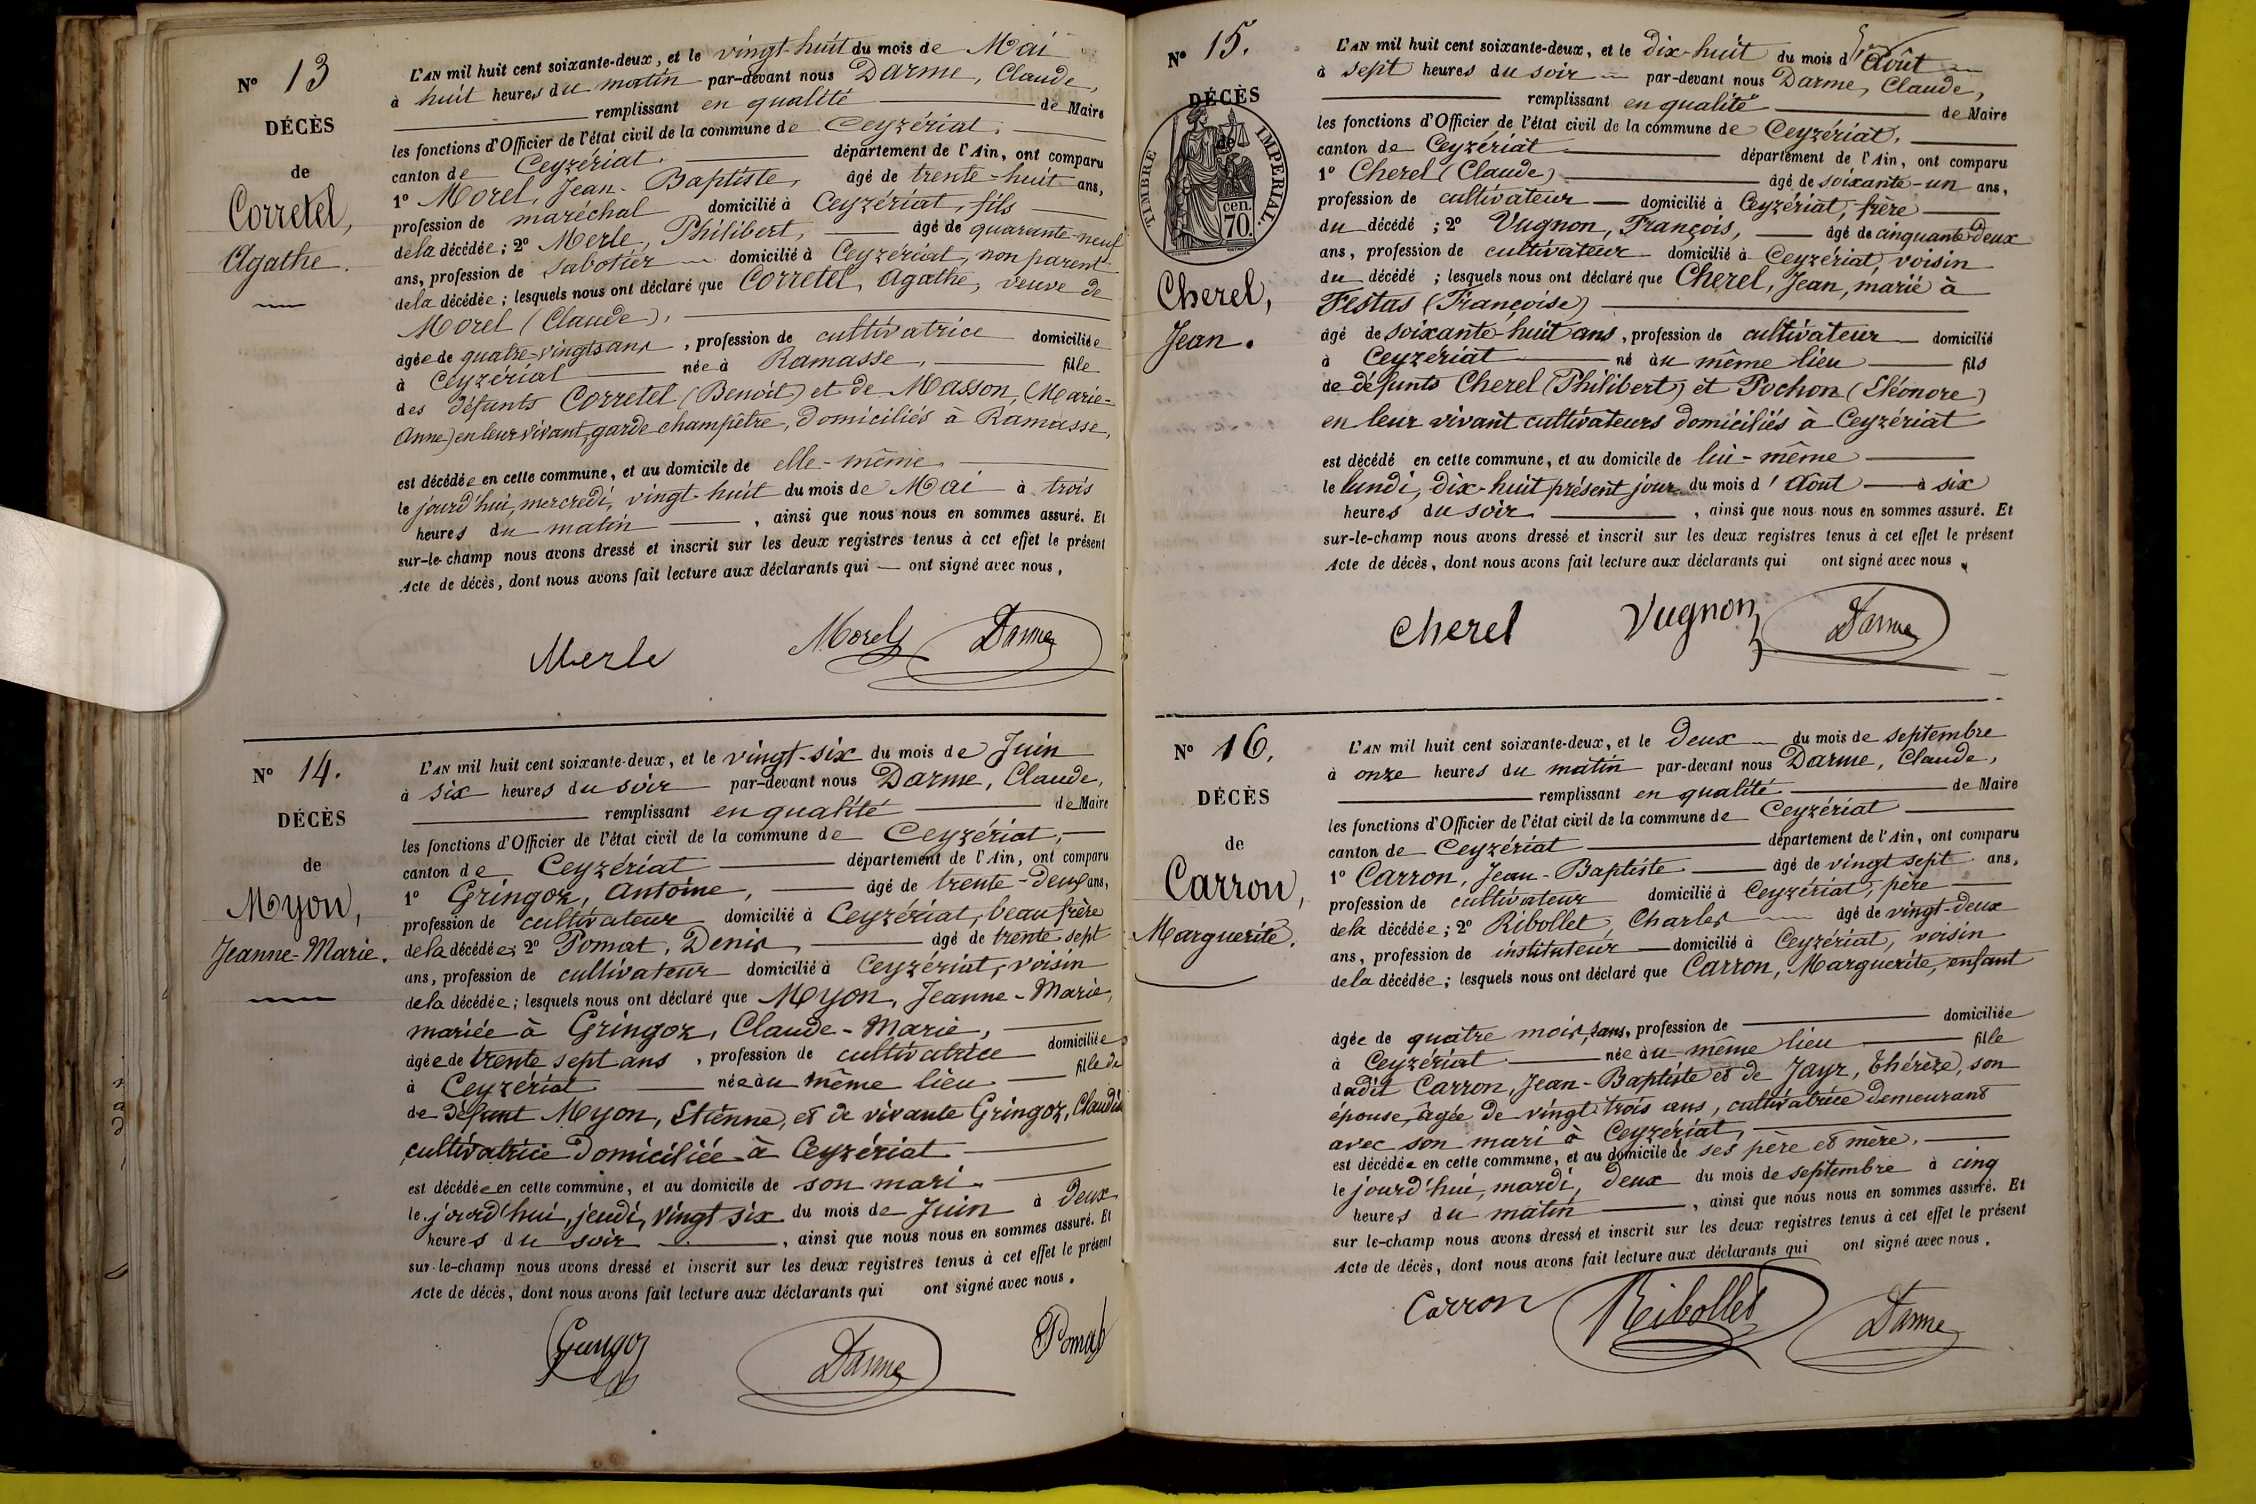 N° 13
DÉCÈS
de
Corretel,
Agathe.
L'AN mil huit cent soixante-deux, et le vingt-huit du mois de Mai
à huit heures du matin par-devant nous Darme, Claude,
remplissant en qualité de Maire
les fonctions d'Officier de l'état civil de la commune de Ceyzériat.
canton de Ceyzériat. département de l'Ain, ont comparu
1° Morel, Jean-Baptiste, âgé de trente-huit ans,
profession de maréchal domicilié à Ceyzériat, fils
de la décédée ; 2° Merle, Philibert, âgé de quarante-neuf
ans, profession de sabotier domicilié à Ceyzériat, non parent
de la décédée ; lesquels nous ont déclaré que Corretel, Agathe, veuve de
Morel (Claude),
âgée de quatre-vingts ans, profession de cultivatrice domiciliée
à Ceyzériat née à Ramasse, fille
des défunts Corretel (Benoit) et de Masson, (Marie-
Anne) en leur vivant, garde champêtre, domiciliés à Ramasse,
est décédée en cette commune, et au domicile de elle-même
le jourd'hui, mercredi, vingt-huit du mois de Mai à trois
heures du matin, ainsi que nous nous en sommes assuré. Et
sur-le-champ nous avons dressé et inscrit sur les deux registres tenus à cet effet le présent
Acte de décès, dont nous avons fait lecture aux déclarants qui — ont signé avec nous,
Merle Morel Darme
N° 14.
DÉCÈS
de
Myon,
Jeanne-Marie.
L'AN mil huit cent soixante-deux, et le vingt-six du mois de Juin
à six heures du soir par-devant nous Darme, Claude,
remplissant en qualité de Maire
les fonctions d'Officier de l'état civil de la commune de Ceyzériat,
canton de Ceyzériat département de l'Ain, ont comparu
1° Gringoz, Antoine, âgé de trente-deux ans,
profession de cultivateur domicilié à Ceyzériat, beau frère
de la décédée ; 2° Pomat, Denis, âgé de trente sept
ans, profession de cultivateur domicilié à Ceyzériat, voisin
de la décédée ; lesquels nous ont déclaré que Myon, Jeanne-Marie,
mariée à Gringoz, Claude-Marie,
âgée de trente sept ans, profession de cultivatrice domiciliée
à Ceyzériat née au même lieu fille de
de défunt Myon, Etienne, et de vivante Gringoz, Claudine
cultivatrice domiciliée à Ceyzériat
est décédée en cette commune, et au domicile de son mari
le jourd'hui, jeudi, vingt six du mois de Juin à deux
heures du soir, ainsi que nous nous en sommes assuré. Et
sur-le-champ nous avons dressé et inscrit sur les deux registres tenus à cet effet le présent
Acte de décès, dont nous avons fait lecture aux déclarants qui ont signé avec nous.
Gringoz Darme Pomat
N° 15.
DÉCÈS
de
TIMBRE IMPÉRIAL.
cen.
70.
Cherel,
Jean.
L'AN mil huit cent soixante-deux, et le dix-huit du mois d'Août
à sept heures du soir par-devant nous Darme, Claude,
remplissant en qualité de Maire
les fonctions d'Officier de l'état civil de la commune de Ceyzériat,
canton de Ceyzériat département de l'Ain, ont comparu
1° Cherel (Claude) âgé de soixante-un ans,
profession de cultivateur domicilié à Ceyzériat, frère
du décédé ; 2° Vugnon, François, âgé de cinquante-deux
ans, profession de cultivateur domicilié à Ceyzériat, voisin
du décédé ; lesquels nous ont déclaré que Cherel, Jean, marié à
Festas (Françoise)
âgé de soixante-huit ans, profession de cultivateur domicilié
à Ceyzériat né au même lieu fils
de défunts Cherel (Philibert) et Pochon (Eléonore)
en leur vivant cultivateurs domiciliés à Ceyzériat
est décédé en cette commune, et au domicile de lui-même
le lundi, dix-huit présent jour du mois d'Août à six
heures du soir, ainsi que nous nous en sommes assuré. Et
sur-le-champ nous avons dressé et inscrit sur les deux registres tenus à cet effet le présent
Acte de décès, dont nous avons fait lecture aux déclarants qui ont signé avec nous.
Cherel Vugnon Darme
N° 16.
DÉCÈS
de
Carron,
Marguerite.
L'AN mil huit cent soixante-deux, et le deux du mois de septembre
à onze heures du matin par-devant nous Darme, Claude,
remplissant en qualité de Maire
les fonctions d'Officier de l'état civil de la commune de Ceyzériat
canton de Ceyzériat département de l'Ain, ont comparu
1° Carron, Jean-Baptiste âgé de vingt sept ans,
profession de cultivateur domicilié à Ceyzériat, père
de la décédée ; 2° Ribollet, Charles âgé de vingt-deux
ans, profession de instituteur domicilié à Ceyzériat, voisin
de la décédée ; lesquels nous ont déclaré que Carron, Marguerite, enfant
âgée de quatre mois, sans, profession de domiciliée
à Ceyzériat née au même lieu fille
dudit Carron, Jean-Baptiste et de Jayr, Thérèze, son
épouse, âgée de vingt trois ans, cultivatrice demeurant
avec son mari à Ceyzériat,
est décédée en cette commune, et au domicile de ses père et mère.
le jourd'hui, mardi, deux du mois de septembre à cinq
heures du matin, ainsi que nous nous en sommes assuré. Et
sur le-champ nous avons dressé et inscrit sur les deux registres tenus à cet effet le présent
Acte de décès, dont nous avons fait lecture aux déclarants qui ont signé avec nous.
Carron Ribollet Darme